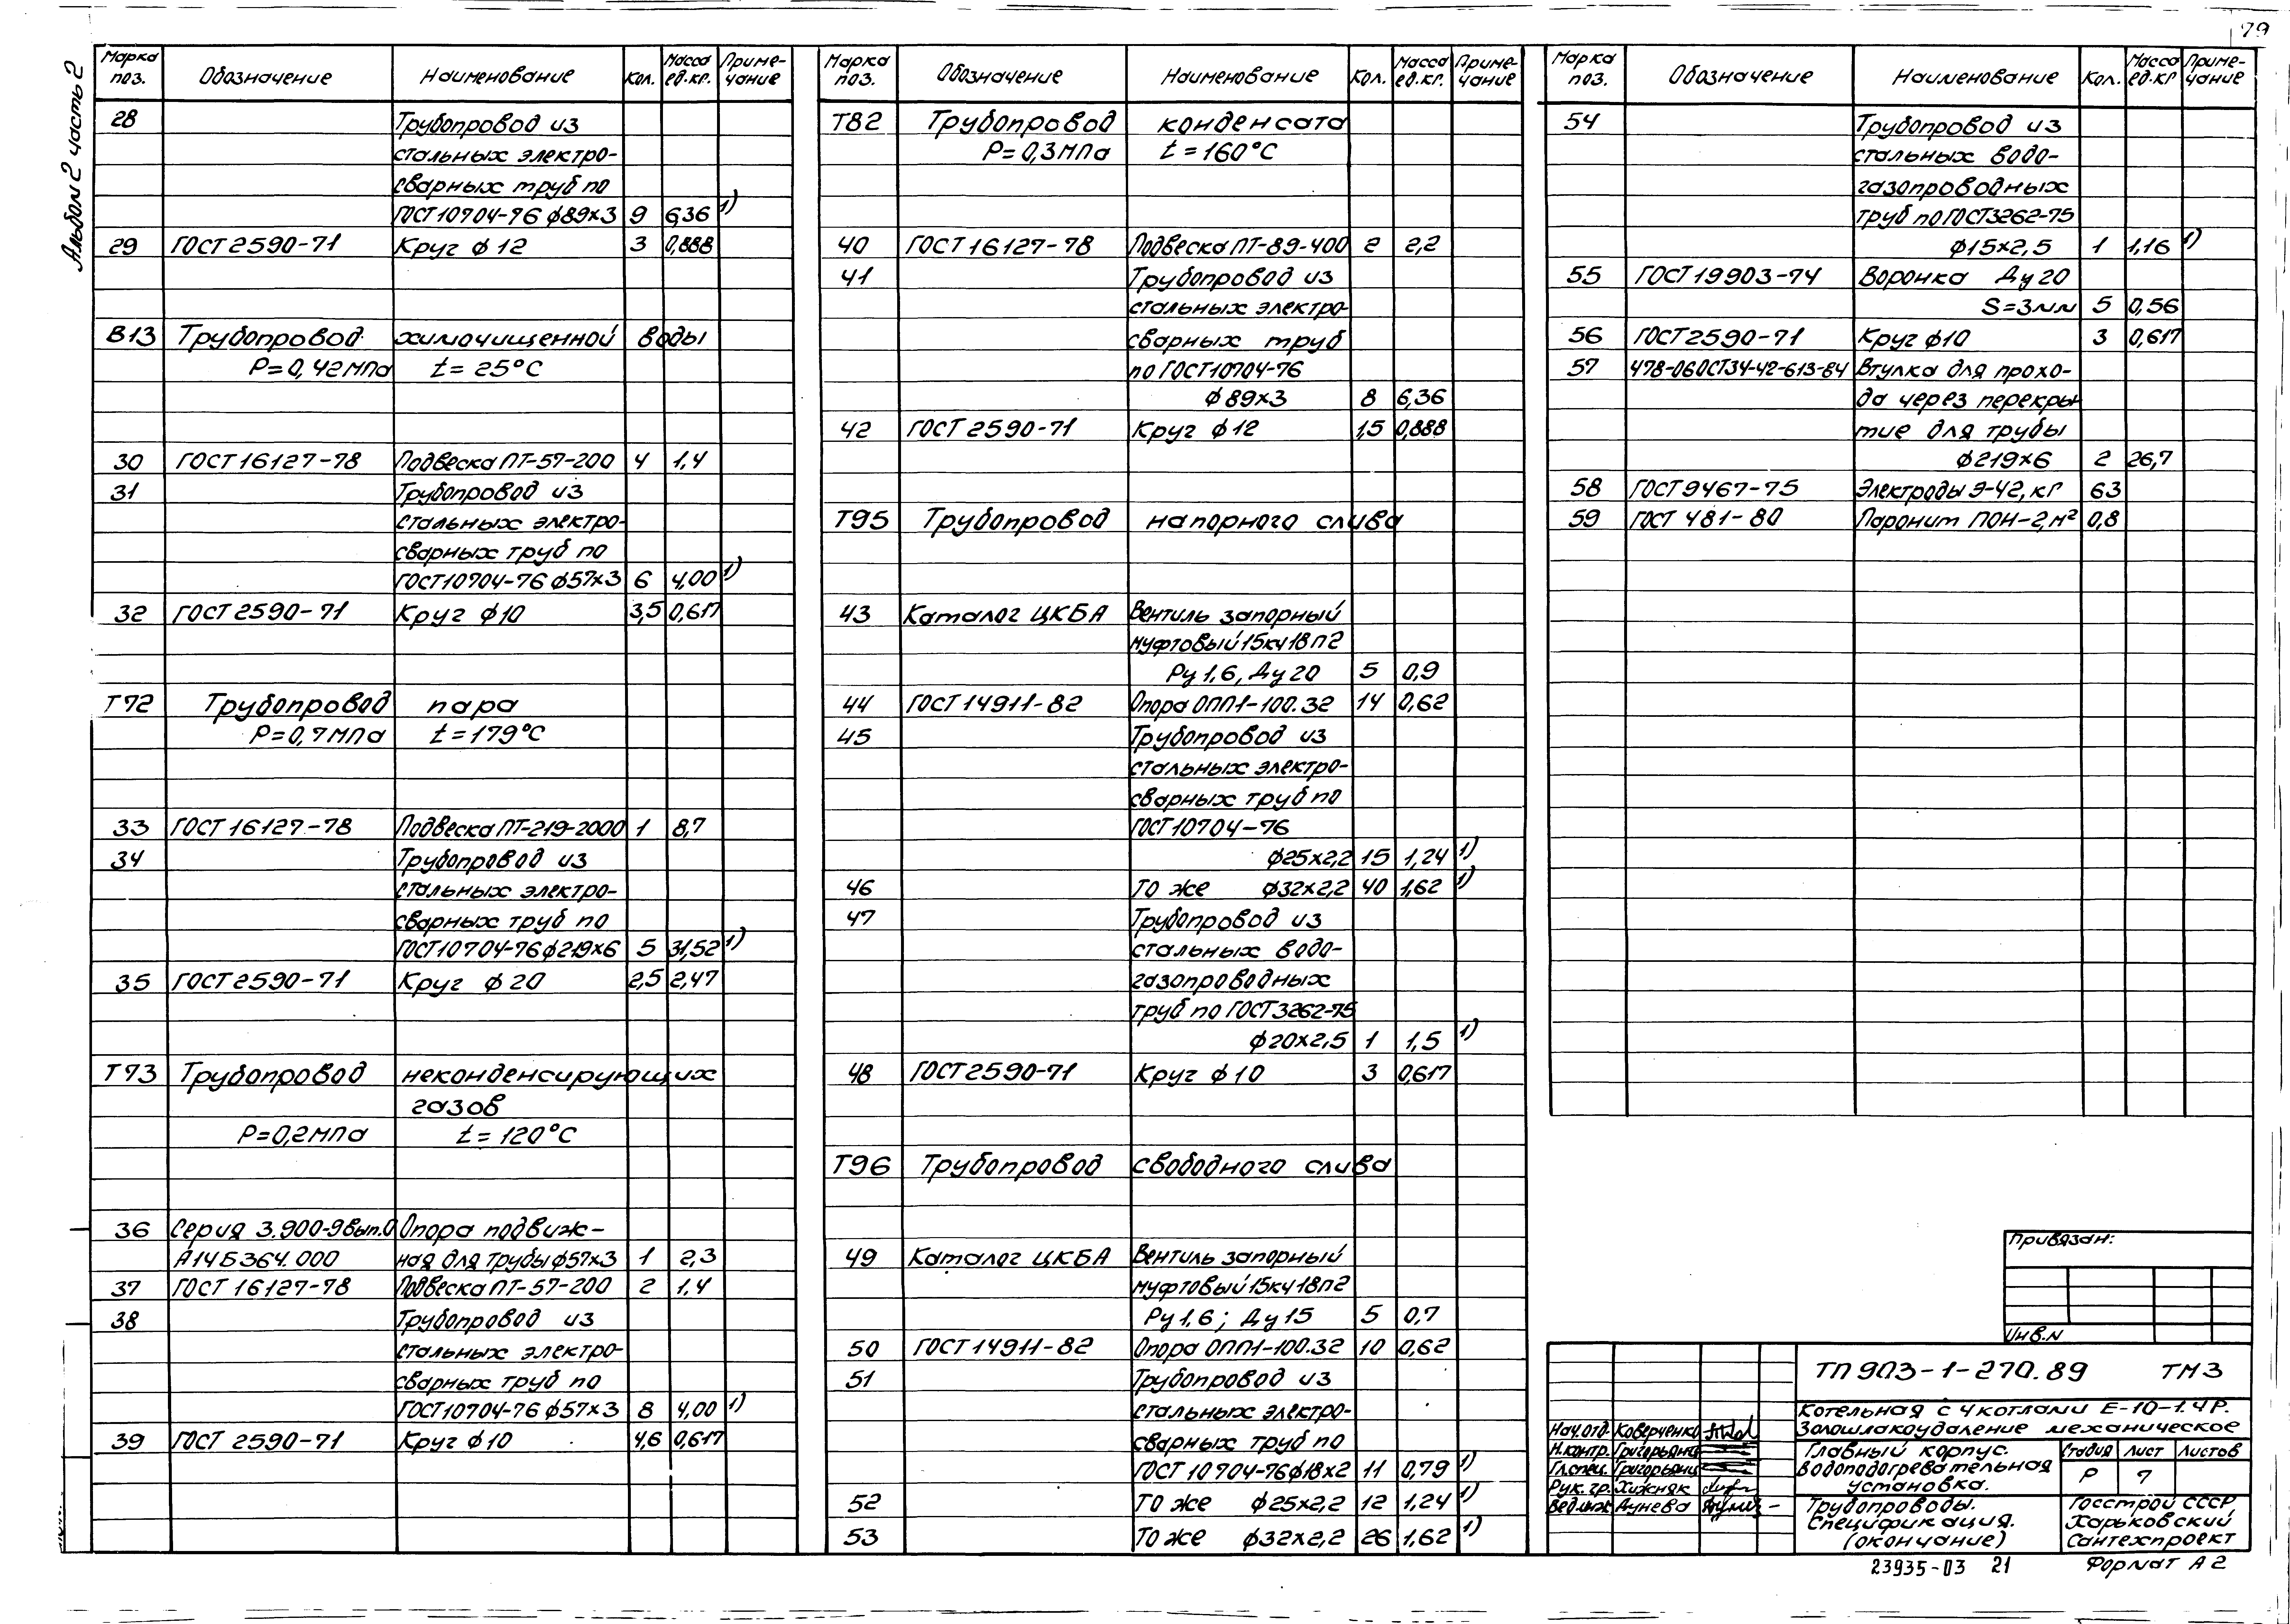 79
Альбом 2 часть 2
Марка поз. Обозначение Наименование Кол. Масса ед.кг. Примечание
28 Трубопровод из
стальных электро-
сварных труб по
ГОСТ10704-76 ф89×3 9 6,36 1)
29 ГОСТ 2590-71 Круг ф 12 3 0,888
В13 Трубопровод химочищенной воды
Р=0,42МПа t=25°С
30 ГОСТ16127-78 Подвеска ПТ-57-200 4 1,4
31 Трубопровод из
стальных электро-
сварных труб по
ГОСТ10704-76 ф57×3 6 4,00 1)
32 ГОСТ2590-71 Круг ф10 3,5 0,617
Т72 Трубопровод пара
Р=0,7МПа t=179°С
33 ГОСТ 16127-78 Подвеска ПТ-219-2000 1 8,7
34 Трубопровод из
стальных электро-
сварных труб по
ГОСТ10704-76ф219×6 5 31,52 1)
35 ГОСТ2590-71 Круг ф 20 2,5 2,47
Т73 Трубопровод неконденсирующих
газов
Р=0,2МПа t=120°С
36 Серия 3.900-9вып.0 Опора подвиж-
А14Б364.000 ная для трубы ф57×3 1 2,3
37 ГОСТ 16127-78 Подвеска ПТ-57-200 2 1,4
38 Трубопровод из
стальных электро-
сварных труб по
ГОСТ10704-76 ф57×3 8 4,00 1)
39 ГОСТ 2590-71 Круг ф10 4,6 0,617
Марка поз. Обозначение Наименование Кол. Масса ед.кг. Примечание
Т82 Трубопровод конденсата
Р=0,3МПа t=160°С
40 ГОСТ16127-78 Подвеска ПТ-89-400 2 2,2
41 Трубопровод из
стальных электро-
сварных труб
по ГОСТ10704-76
ф89×3 8 6,36
42 ГОСТ2590-71 Круг ф12 1,5 0,888
Т95 Трубопровод напорного слива
43 Каталог ЦКБА Вентиль запорный
муфтовый15кч18п2
Ру 1,6, Ду 20 5 0,9
44 ГОСТ14911-82 Опора ОПП1-100.32 14 0,62
45 Трубопровод из
стальных электро-
сварных труб по
ГОСТ10704-76
ф25×2,2 15 1,24 1)
46 То же ф32×2,2 40 1,62 1)
47 Трубопровод из
стальных водо-
газопроводных
труб по ГОСТ3262-75
ф20×2,5 1 1,5 1)
48 ГОСТ2590-71 Круг ф10 3 0,617
Т96 Трубопровод свободного слива
49 Каталог ЦКБА Вентиль запорный
муфтовый15кч18п2
Ру 1,6; Ду 15 5 0,7
50 ГОСТ14911-82 Опора ОПП1-100.32 10 0,62
51 Трубопровод из
стальных электро-
сварных труб по
ГОСТ 10704-76ф18×2 11 0,79 1)
52 То же ф25×2,2 12 1,24 1)
53 То же ф32×2,2 26 1,62 1)
Марка поз. Обозначение Наименование Кол. Масса ед.кг Примечание
54 Трубопровод из
стальных водо-
газопроводных
труб по ГОСТ3262-75
ф15×2,5 1 1,16 1)
55 ГОСТ19903-74 Воронка Ду 20
S=3мм 5 0,56
56 ГОСТ2590-71 Круг ф10 3 0,617
57 478-06ОСТ34-42-613-84 Втулка для прохо-
да через перекры
тие для трубы
ф219×6 2 26,7
58 ГОСТ9467-75 Электроды Э-42, кг 63
59 ГОСТ 481-80 Паронит ПОН-2,м² 0,8
Привязан:
Инв.N
ТП 903-1-270.89 ТМ3
Котельная с 4 котлами Е-10-1.4Р.
Золошлакоудаление механическое
Нач.отд. Коверченко
Н.контр. Григорьянц
Гл.спец. Григорьянц
Рук.гр. Хижняк
Вед.инж Дунева
Главный корпус.
Водоподогревательная
установка.
Стадия Лист Листов
Р 7
Трубопроводы.
Спецификация.
(окончание)
Госстрой СССР
Харьковский
Сантехпроект
23935-03 21 Формат А2